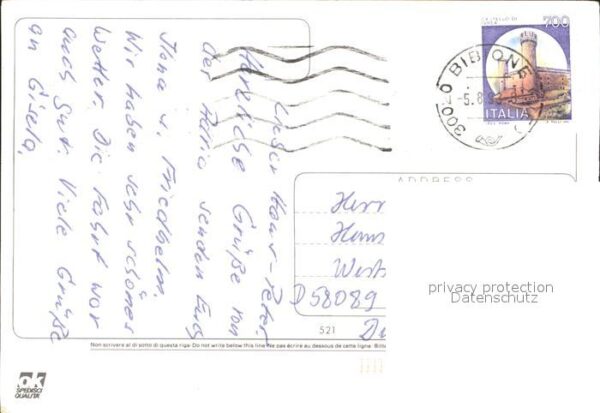 Lieber Hans-Peter,
Herzliche Grüße von
der Adria senden Euch
Ilona u. Friedhelm.
Wir haben sehr schönes
Wetter. Die Fahrt war
auch gut. Viele Grüße
an Gisela.
CASTELLO DI
700
ITALIA
30020 BIBIONE
ADDRESS
Herr
Hans
West
D 58089
privacy protection
Datenschutz
521
Non scrivere al di sotto di questa riga - Do not write below this line - Ne pas écrire au dessous de cette ligne. Bitte
ak
SPEDISCI
QUALITA'